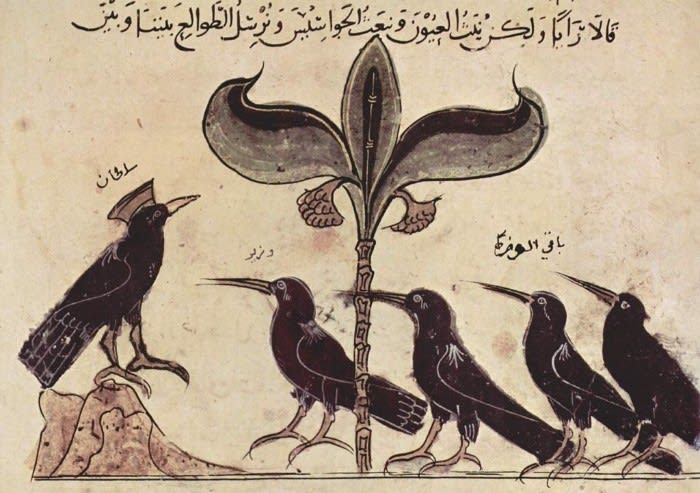 قالا رايا ولكن نبث العيون ونبعث الجواسيس ونرسل الطوالع بيننا وبين
باقي الوزرا